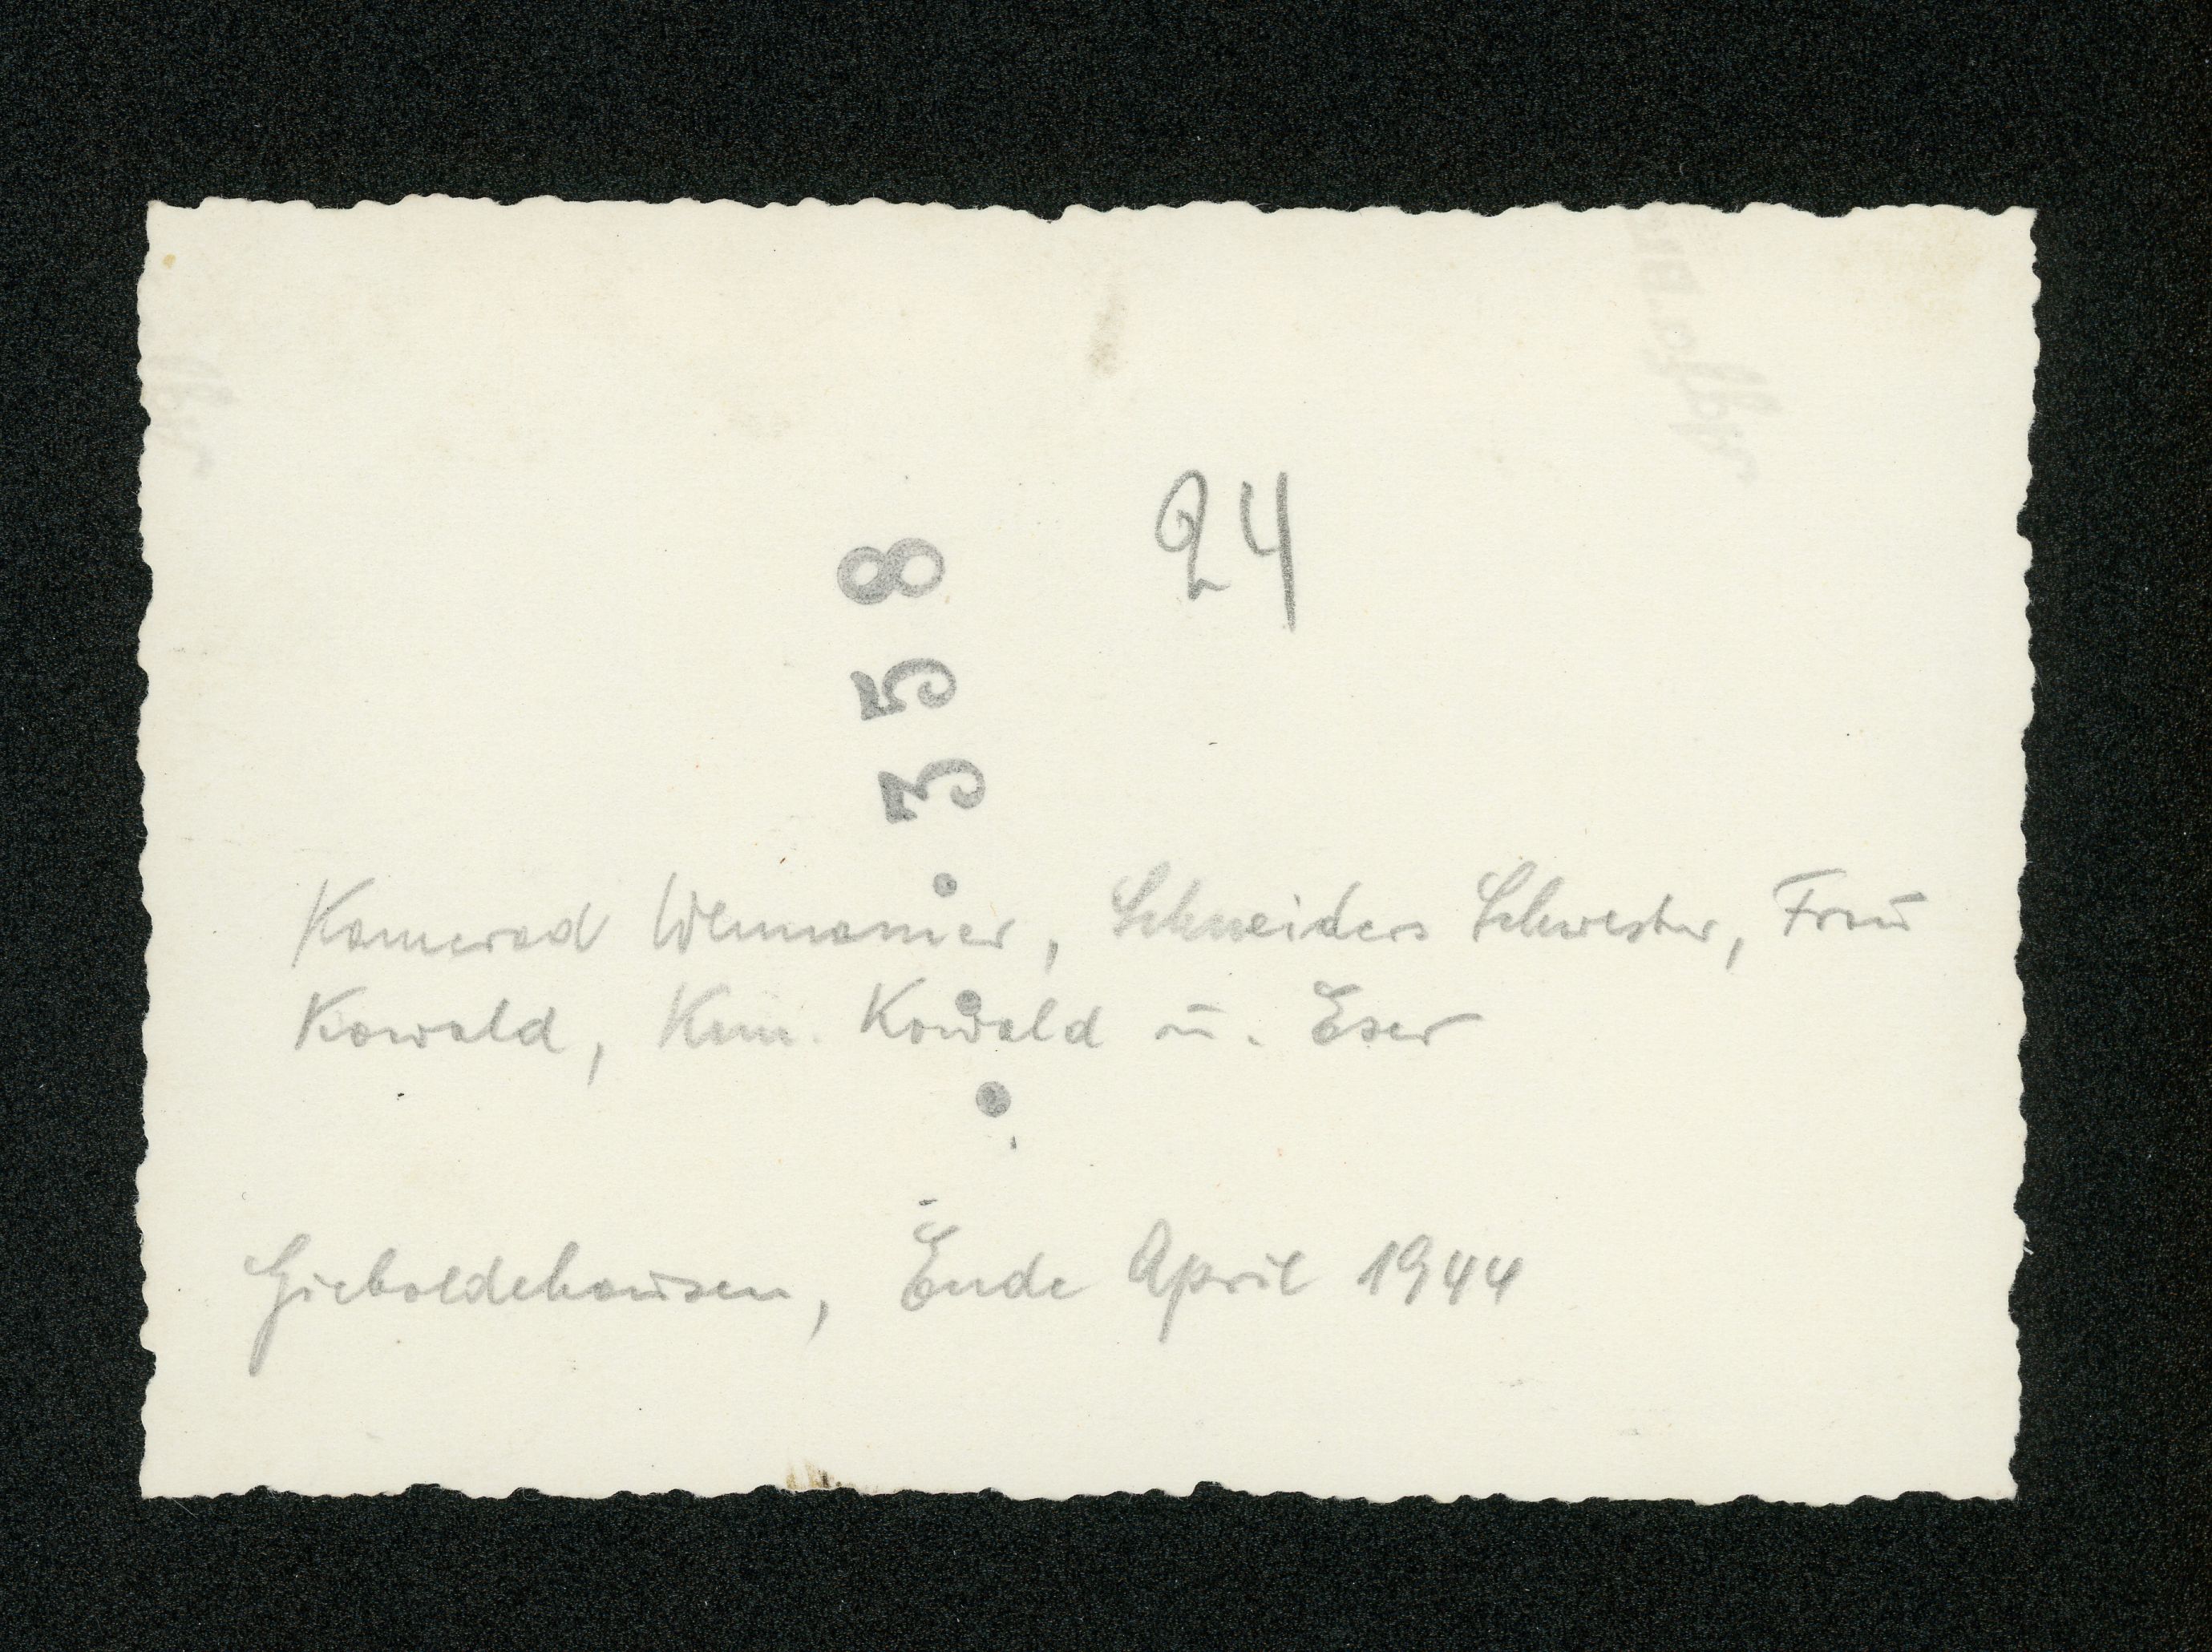 24
358...
Kamerad, Schneiders Schwester, Frau
Kowald, Kam. Kowald u. Eser
Gieboldehausen, Ende April 1944